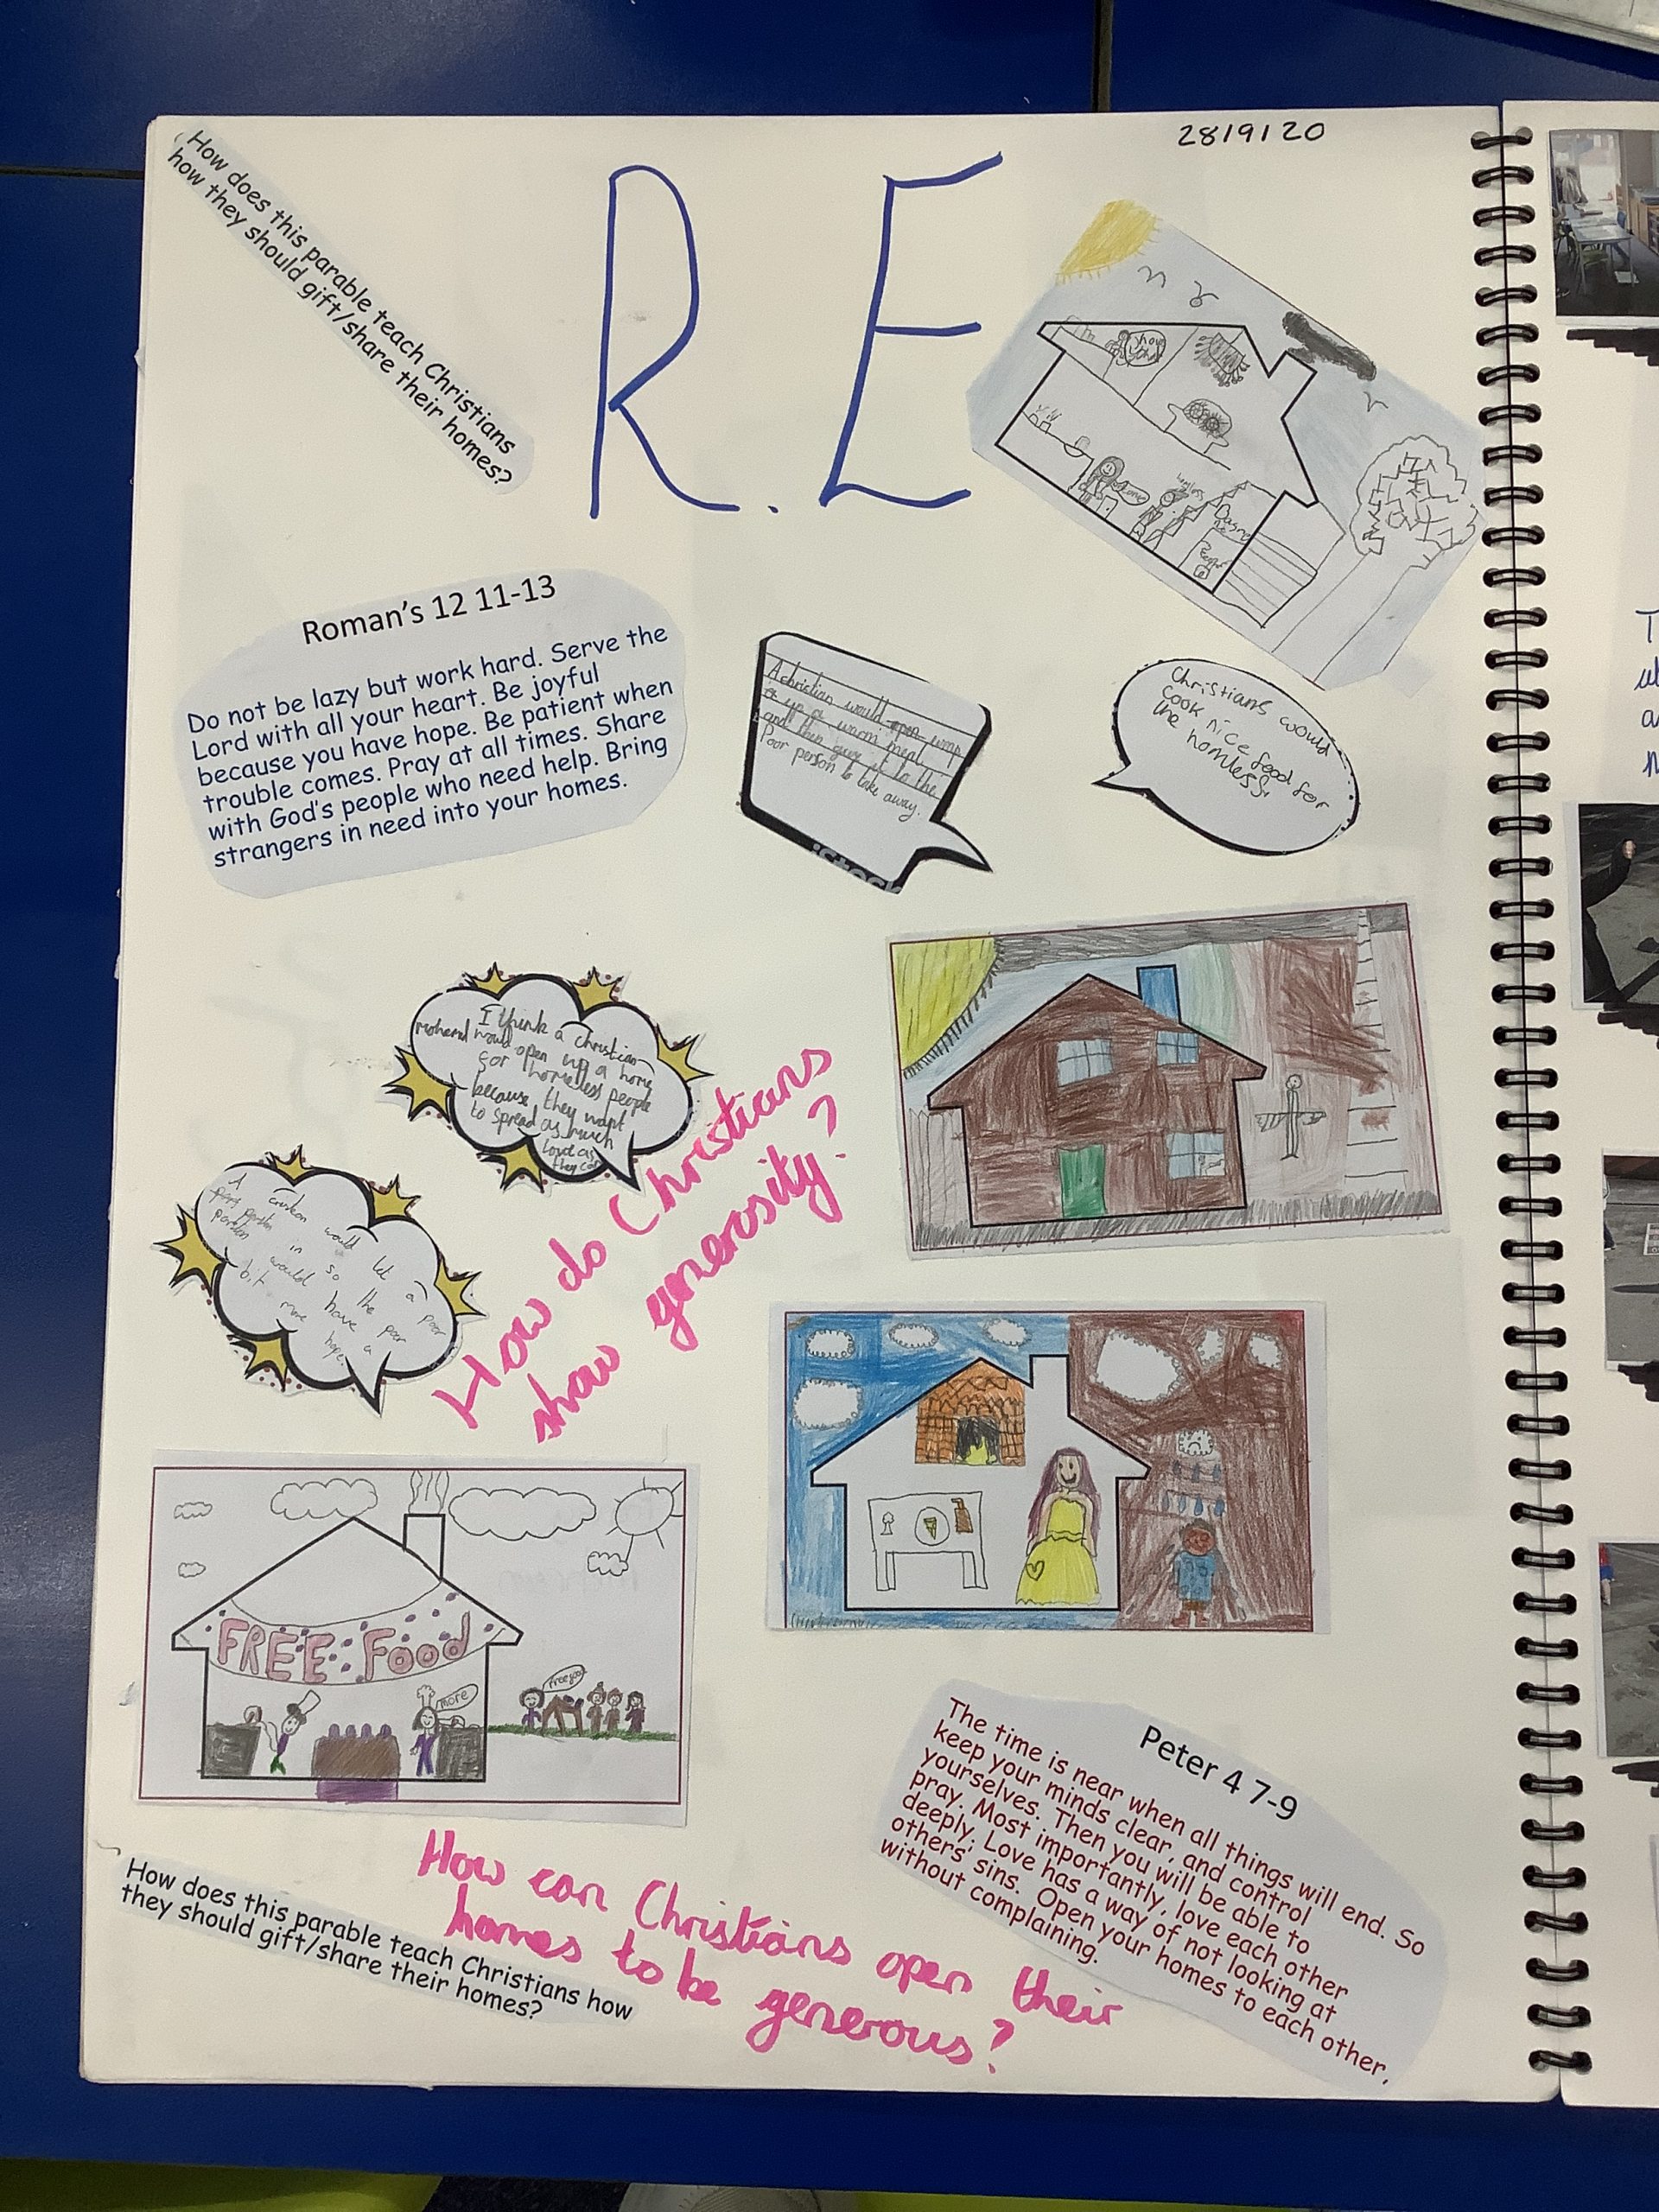 28/9/20
R.E
How does this parable teach Christians
how they should gift/share their homes?
Roman's 12 11-13
Do not be lazy but work hard. Serve the
Lord with all your heart. Be joyful
because you have hope. Be patient when
trouble comes. Pray at all times. Share
with God's people who need help. Bring
strangers in need into your homes.
A christian would open wrap
up a warm meal
and then give it to the
Poor person to take away.
iStock
Christians would
cook nice food for
the homless.
I think a christian
would open up a home
for homeless people
because they want
to spread as much
love as
they can
A would let a poor
person in so the poor
would have a
bit more hope.
How do Christians
show generosity?
FREE Food
more
free food
Peter 4 7-9
The time is near when all things will end. So
keep your minds clear, and control
yourselves. Then you will be able to
pray. Most importantly, love each other
deeply. Love has a way of not looking at
others' sins. Open your homes to each other,
without complaining.
How can Christians open their
homes to be
generous?
How does this parable teach Christians how
they should gift/share their homes?